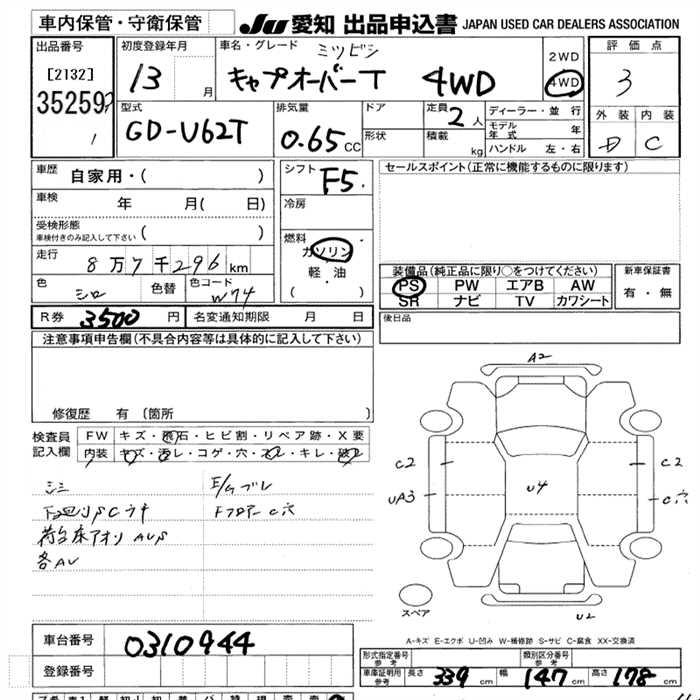 車内保管・守衛保管
JU 愛知 出品申込書 JAPAN USED CAR DEALERS ASSOCIATION
出品番号
[2132]
35259
初度登録年月
13 月
車名・グレード ミツビシ
キャブオーバーT 4WD
2WD
4WD
評価点
3
外装 内装
D C
型式
GD-U62T
排気量
0.65 CC
ドア
形状
定員 2 人
積載 kg
ディーラー・並行
モデル年式 年
ハンドル 左・右
車歴 自家用・( )
車検 年 月( 日)
受検形態
車検付きのみ記入して下さい ( )
走行 8万7千296 km
色 シロ 色替 色コード W74
シフト F5
冷房
燃料
ガソリン・
軽・油
( )
セールスポイント(正常に機能するものに限ります)
装備品(純正品に限り○をつけてください)
PS PW エアB AW
SR ナビ TV カワシート
新車保証書
有・無
R券 3500 円 名変通知期限 月 日
後日品
注意事項申告欄(不具合内容等は具体的に記入して下さい)
修復歴 有〔箇所 〕
検査員
記入欄
FW キズ・飛石・ヒビ割・リペア跡・X要
内装 キズ・汚レ・コゲ・穴・スレ・キレ・破レ
シミ E/Gブレ
下廻りSCサキ Fフロアー C穴
荷台床アオリ AUS
各AU
A2
C2 C2
UA3 C穴
U4
U2
スペア
A-キズ E-エクボ U-凹み W-補修跡 S-サビ C-腐食 XX-交換済
車台番号 0310944
登録番号
形式指定番号 参考
類別区分番号 参考
車庫証明用 参考 長さ 339 cm 幅 147 cm 高さ 178 cm